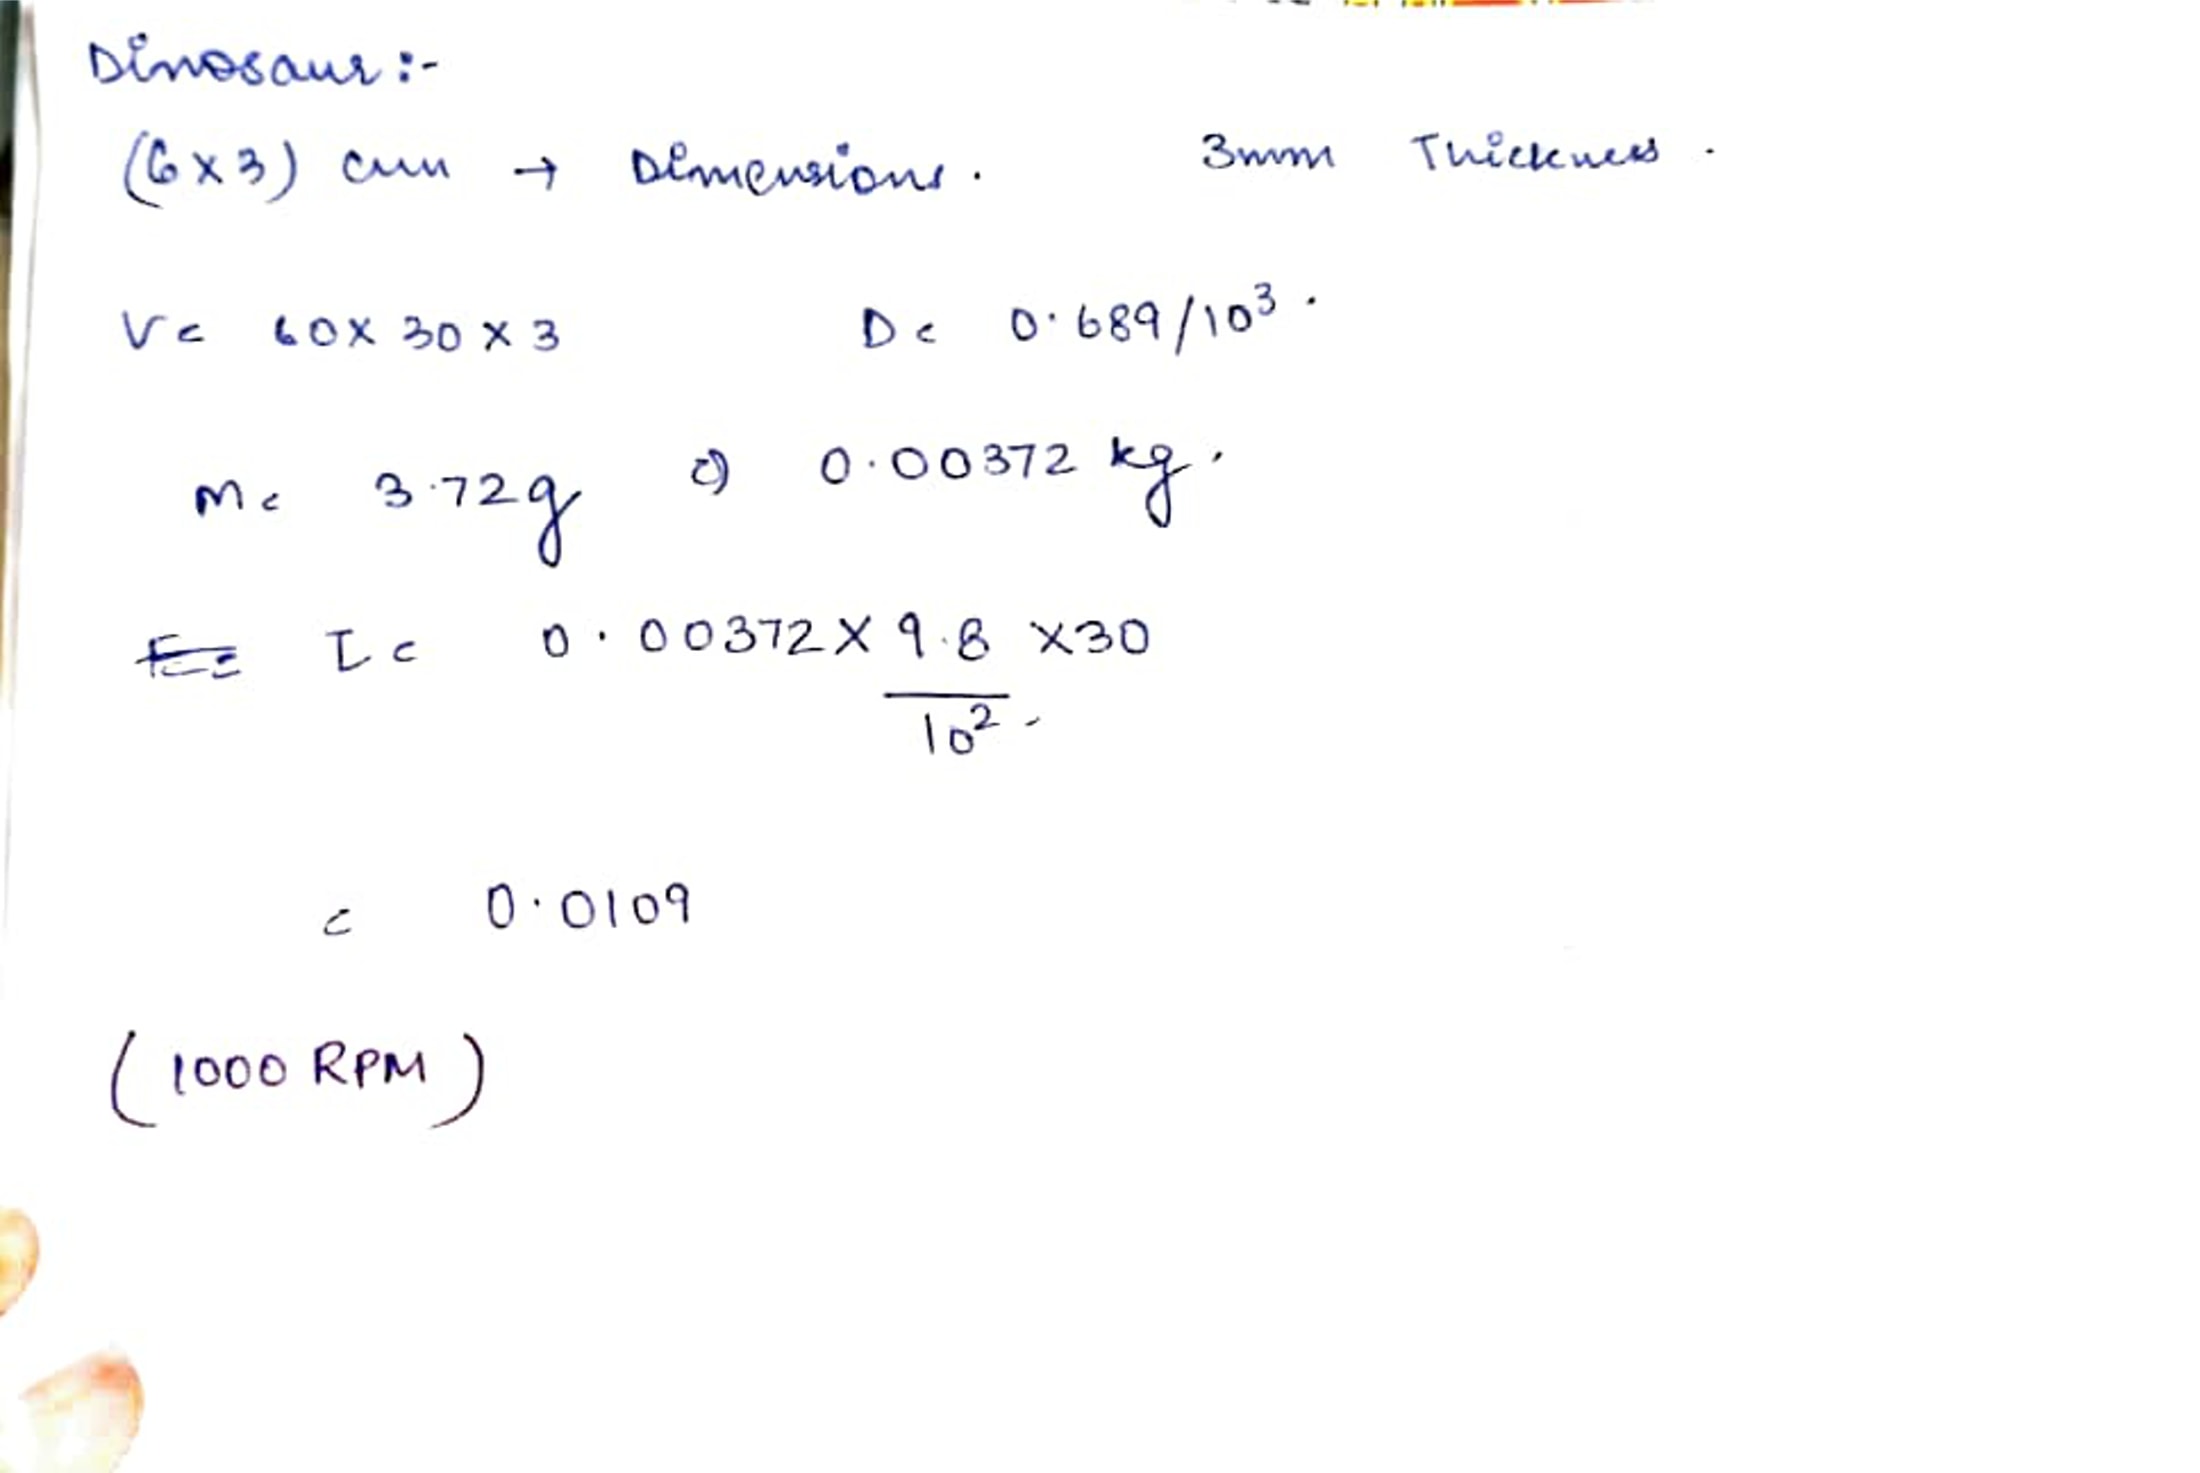 Dinosaur :-
(6x3) cm → Dimensions. 3mm Thickness.
V = 60 x 30 x 3 D = 0.689/10³.
M = 3.72g 0.00372 kg.
I = 0.00372 x 9.8 x30
10²
= 0.0109
(1000 RPM)